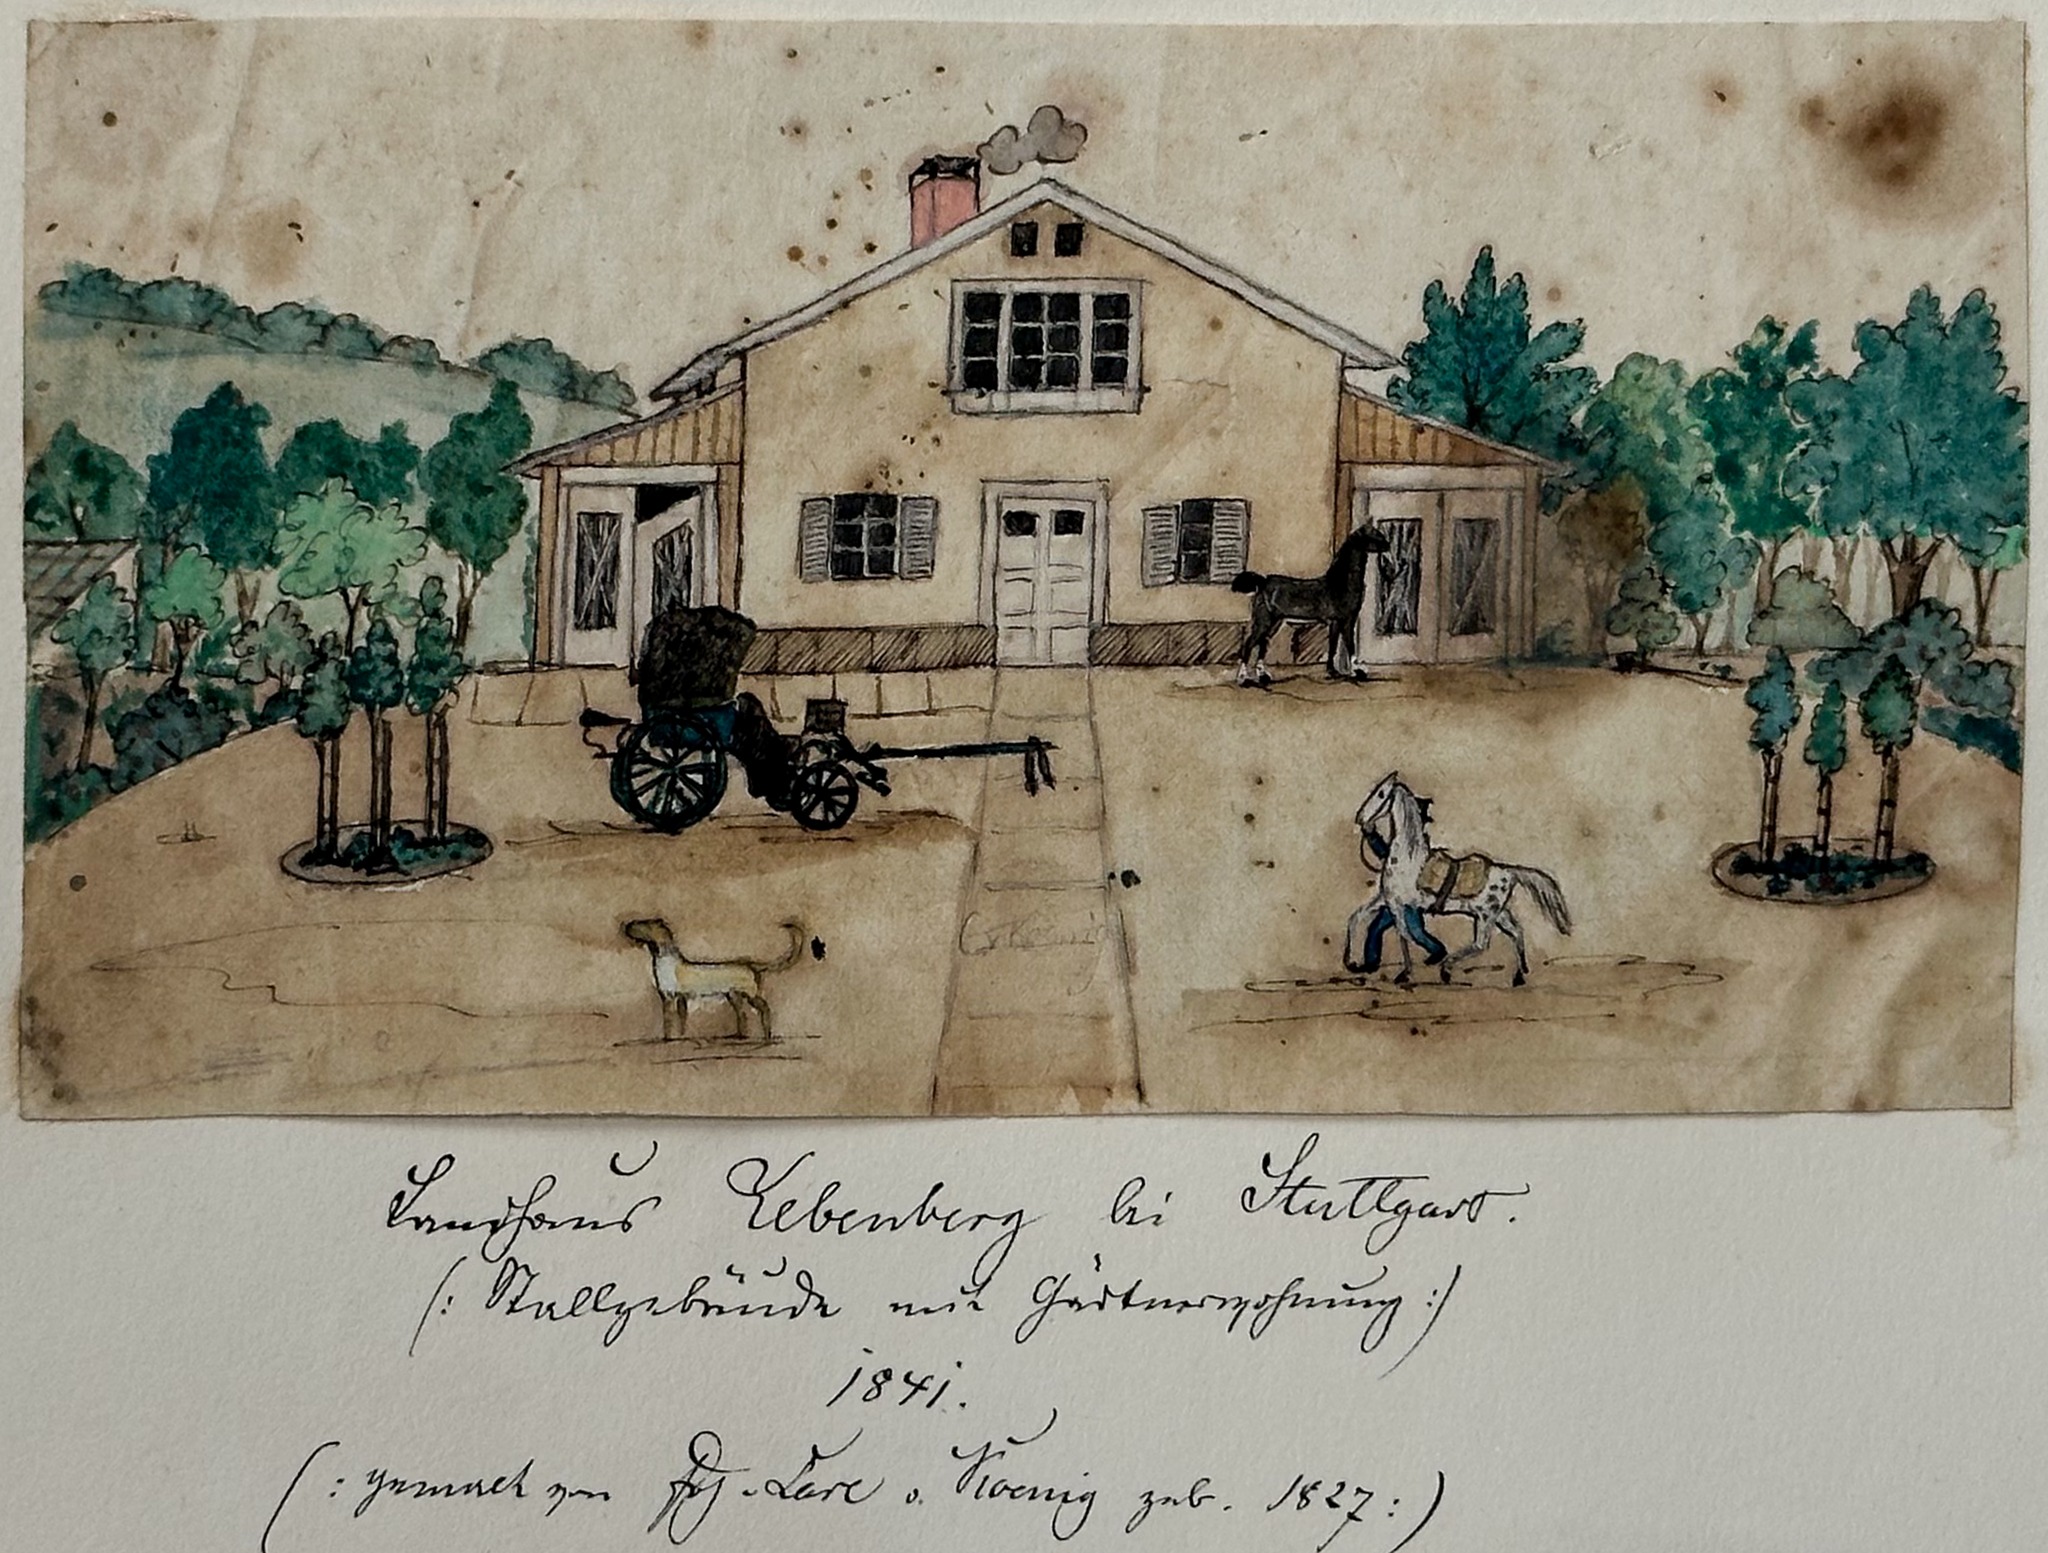 Landhaus Lebenberg bei Stuttgart.
(: Stallgebäude mit Gärtnerwohnung :)
1841.
(: gemacht von Carl v. Koenig geb. 1827 :)